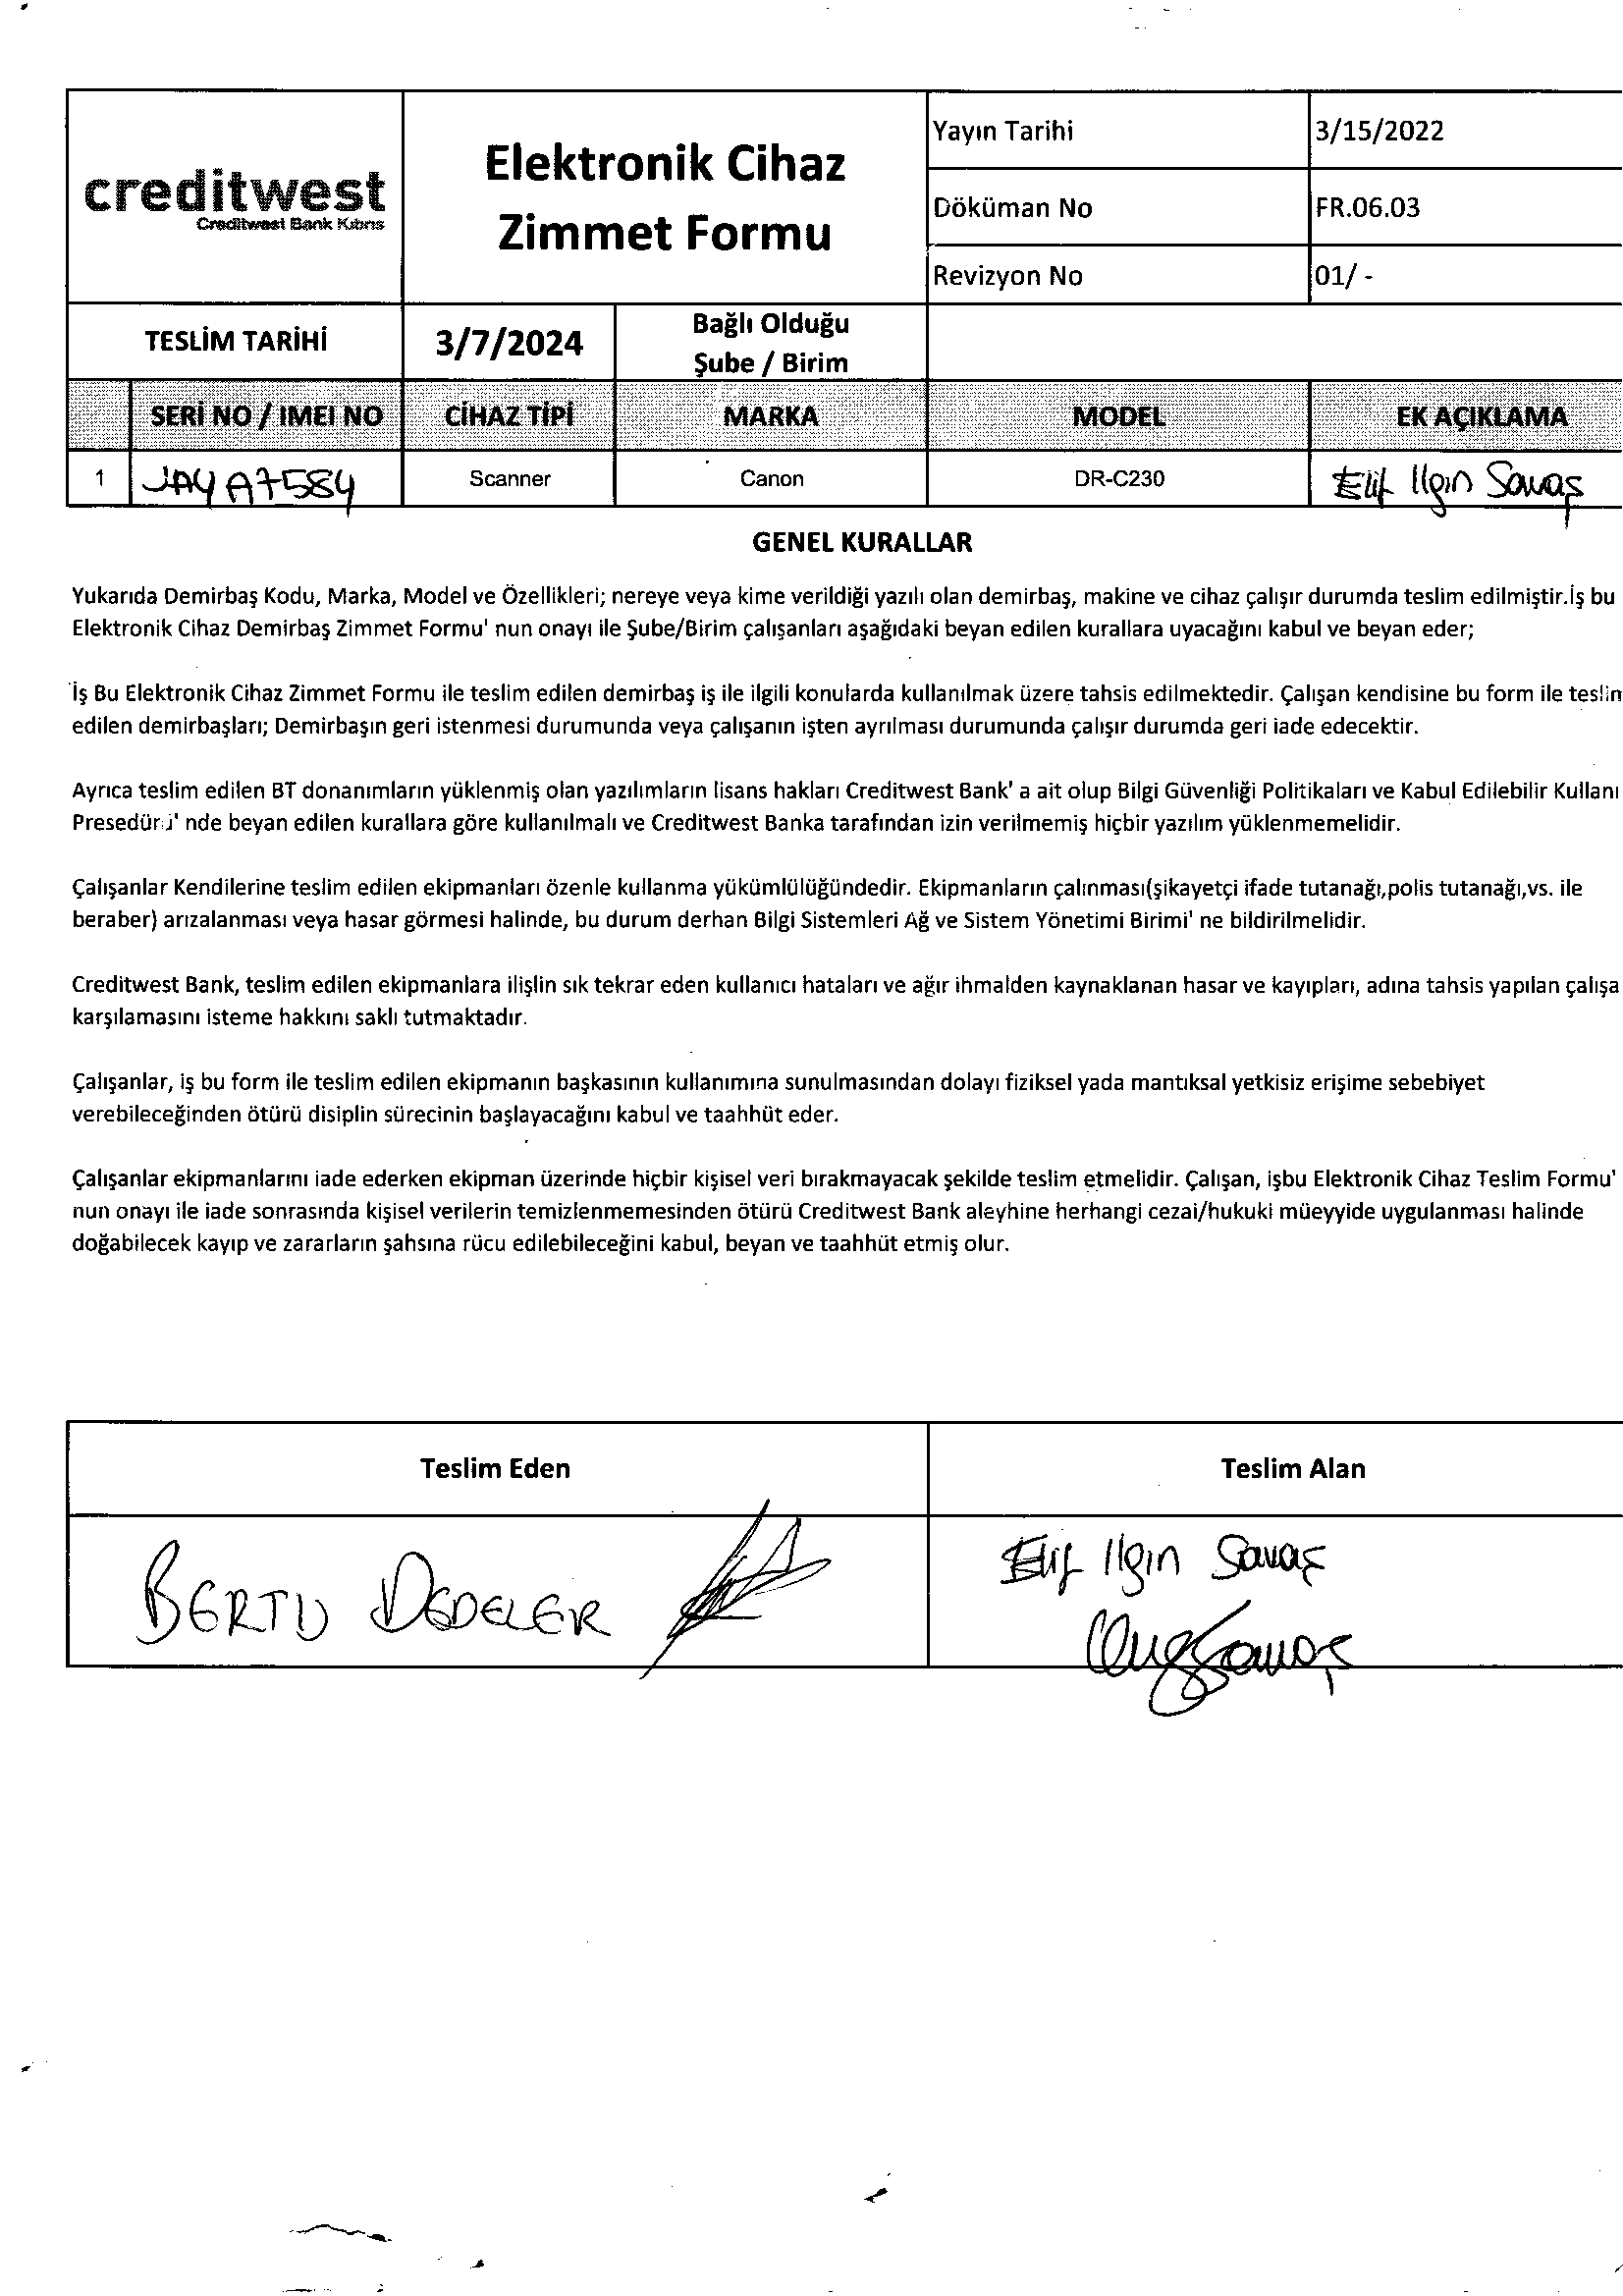 creditwest
Creditwest Bank Kıbrıs
Elektronik Cihaz
Zimmet Formu
Yayın Tarihi 3/15/2022
Döküman No FR.06.03
Revizyon No 01/ -
TESLİM TARİHİ 3/7/2024 Bağlı Olduğu
Şube / Birim
SERİ NO / IMEI NO CİHAZ TİPİ MARKA MODEL EK AÇIKLAMA
1 JAYA7584 Scanner Canon DR-C230 Elif Ilgın Savaş
GENEL KURALLAR
Yukarıda Demirbaş Kodu, Marka, Model ve Özellikleri; nereye veya kime verildiği yazılı olan demirbaş, makine ve cihaz çalışır durumda teslim edilmiştir.İş bu
Elektronik Cihaz Demirbaş Zimmet Formu' nun onayı ile Şube/Birim çalışanları aşağıdaki beyan edilen kurallara uyacağını kabul ve beyan eder;
İş Bu Elektronik Cihaz Zimmet Formu ile teslim edilen demirbaş iş ile ilgili konularda kullanılmak üzere tahsis edilmektedir. Çalışan kendisine bu form ile teslin
edilen demirbaşları; Demirbaşın geri istenmesi durumunda veya çalışanın işten ayrılması durumunda çalışır durumda geri iade edecektir.
Ayrıca teslim edilen BT donanımların yüklenmiş olan yazılımların lisans hakları Creditwest Bank' a ait olup Bilgi Güvenliği Politikaları ve Kabul Edilebilir Kullanı
Presedürü' nde beyan edilen kurallara göre kullanılmalı ve Creditwest Banka tarafından izin verilmemiş hiçbir yazılım yüklenmemelidir.
Çalışanlar Kendilerine teslim edilen ekipmanları özenle kullanma yükümlülüğündedir. Ekipmanların çalınması(şikayetçi ifade tutanağı,polis tutanağı,vs. ile
beraber) arızalanması veya hasar görmesi halinde, bu durum derhan Bilgi Sistemleri Ağ ve Sistem Yönetimi Birimi' ne bildirilmelidir.
Creditwest Bank, teslim edilen ekipmanlara ilişlin sık tekrar eden kullanıcı hataları ve ağır ihmalden kaynaklanan hasar ve kayıpları, adına tahsis yapılan çalışa
karşılamasını isteme hakkını saklı tutmaktadır.
Çalışanlar, iş bu form ile teslim edilen ekipmanın başkasının kullanımına sunulmasından dolayı fiziksel yada mantıksal yetkisiz erişime sebebiyet
verebileceğinden ötürü disiplin sürecinin başlayacağını kabul ve taahhüt eder.
Çalışanlar ekipmanlarını iade ederken ekipman üzerinde hiçbir kişisel veri bırakmayacak şekilde teslim etmelidir. Çalışan, işbu Elektronik Cihaz Teslim Formu'
nun onayı ile iade sonrasında kişisel verilerin temizlenmemesinden ötürü Creditwest Bank aleyhine herhangi cezai/hukuki müeyyide uygulanması halinde
doğabilecek kayıp ve zararların şahsına rücu edilebileceğini kabul, beyan ve taahhüt etmiş olur.
Teslim Eden Teslim Alan
BERTU DEDELER Elif Ilgın Savaş